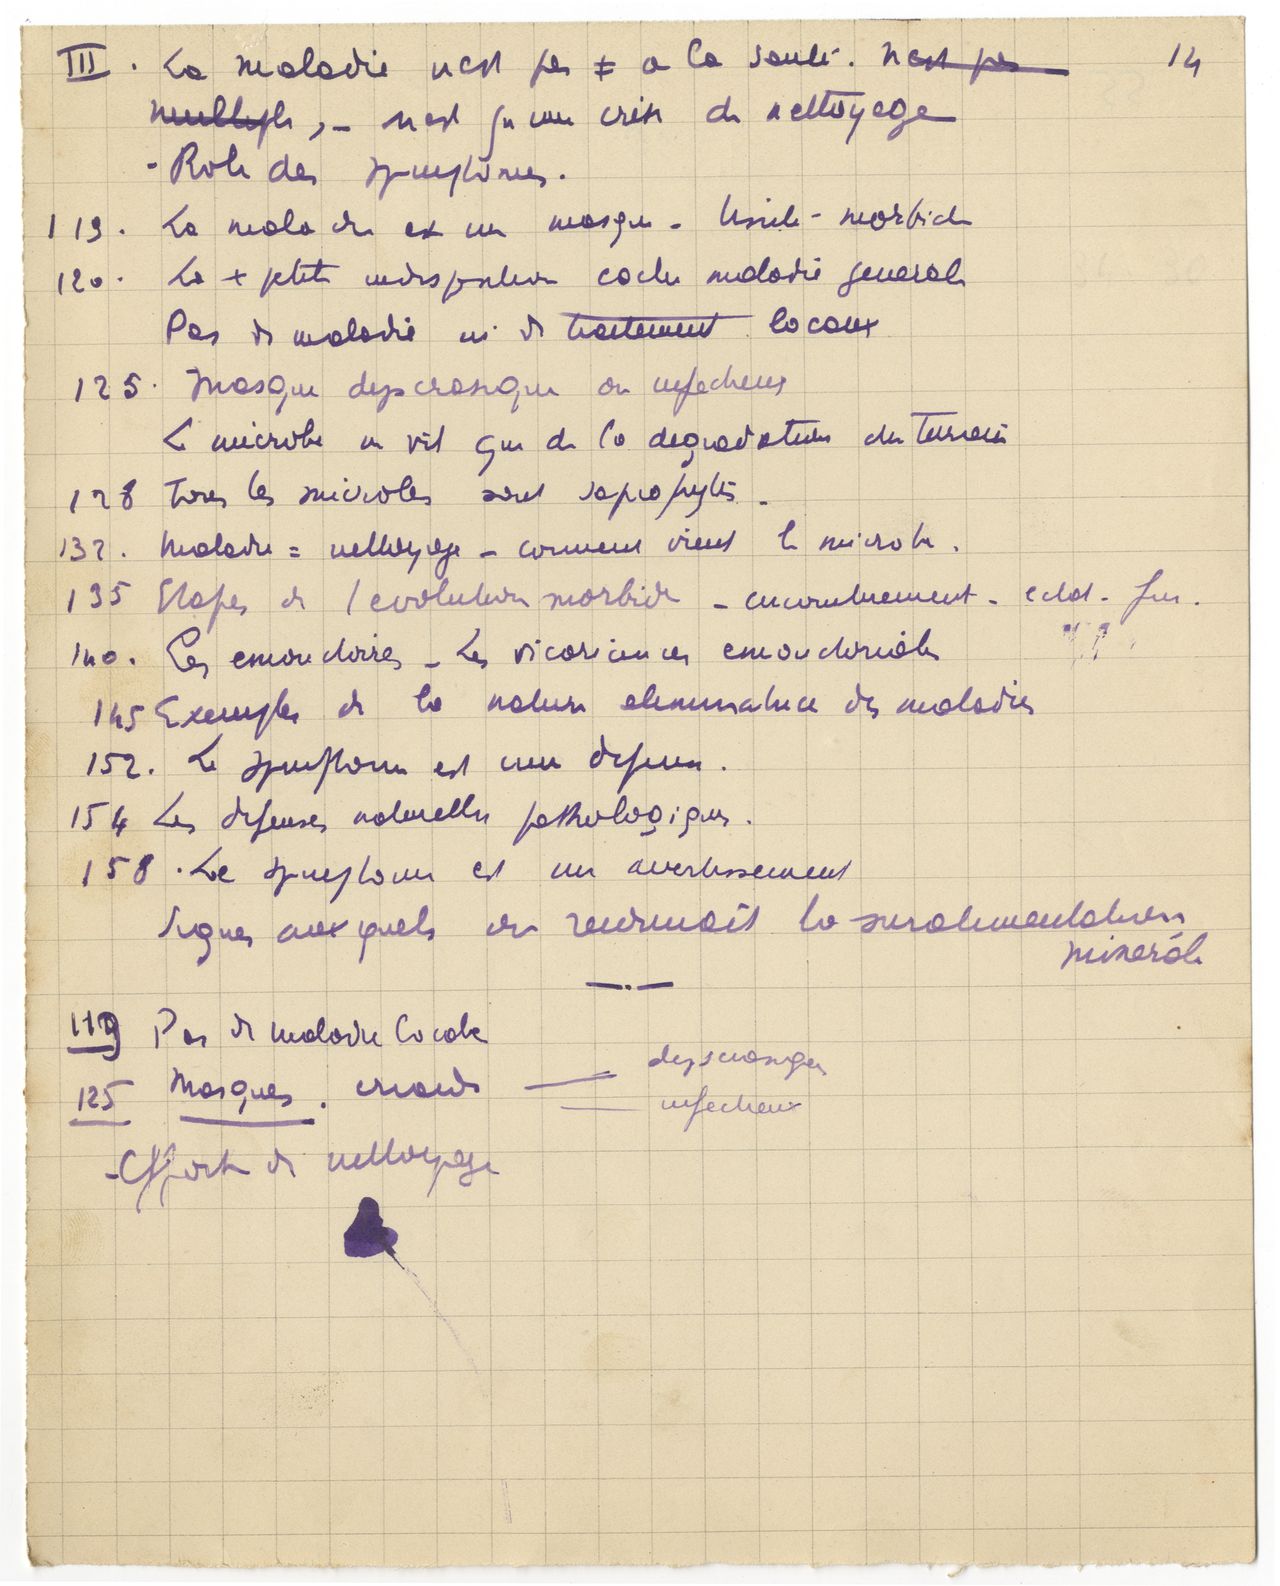 III. La maladie n'est pas ≠ a la santé. n'est pas 14
multiple, - n'est qu'une crise de nettoyage
- Role des symptomes.
119. La maladie est un masque - Unité - morbide
120. La + petite indisposition cache maladie generale
Pas de maladie ni de traitement locaux
125. Masque dyscrasique ou infectieux
Le microbe ne vit que de la degradation du terrain
128 Tous les microbes sont saprophytes -
132. Maladie = nettoyage - comment vient le microbe.
135 Etapes de l'evolution morbide - encombrement -
140. Les emonctoires - Les vicariances emonctorielles
145 Exemples de la nature eliminatrice des maladies
152. Le symptome est une defense.
154 Les defenses naturelles pathologiques.
158. Le symptome est un avertissement
Signes auxquels on reconnait la suralimentation
minerale
119 Pas de maladie locale
125 Masques. dyscrasiques
infectieux
- Effort de nettoyage